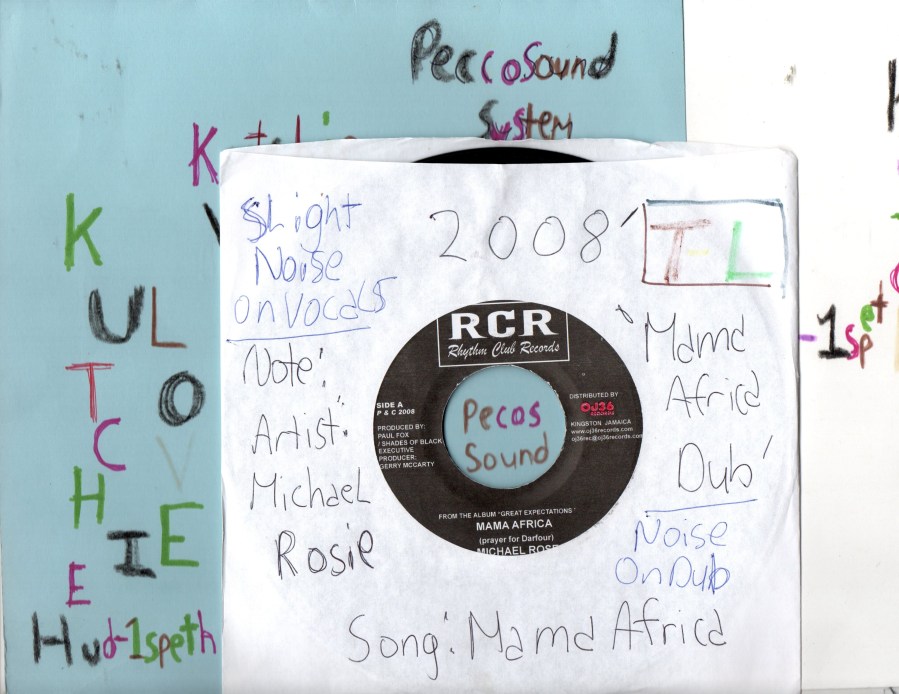 PeccoSound
System
K
U L
T O
C V
H I E
E
Hud-1speth
SLight
Noise
on Vocals
Note:
Artist:
Michael
Rosie
2008'
T-L
'Mama
Africa
Dub'
Noise
On Dub
Song: Mama Africa
RCR
Rhythm Club Records
SIDE A
P & C 2008
PRODUCED BY:
PAUL FOX
/ SHADES OF BLACK
EXECUTIVE
PRODUCER:
GERRY MCCARTY
Pecos
Sound
DISTRIBUTED BY
OJ36
RECORDS
KINGSTON JAMAICA
www.oj36records.com
oj36rec@oj36records.com
FROM THE ALBUM "GREAT EXPECTATIONS"
MAMA AFRICA
(prayer for Darfour)
MICHAEL ROSE
-1spet